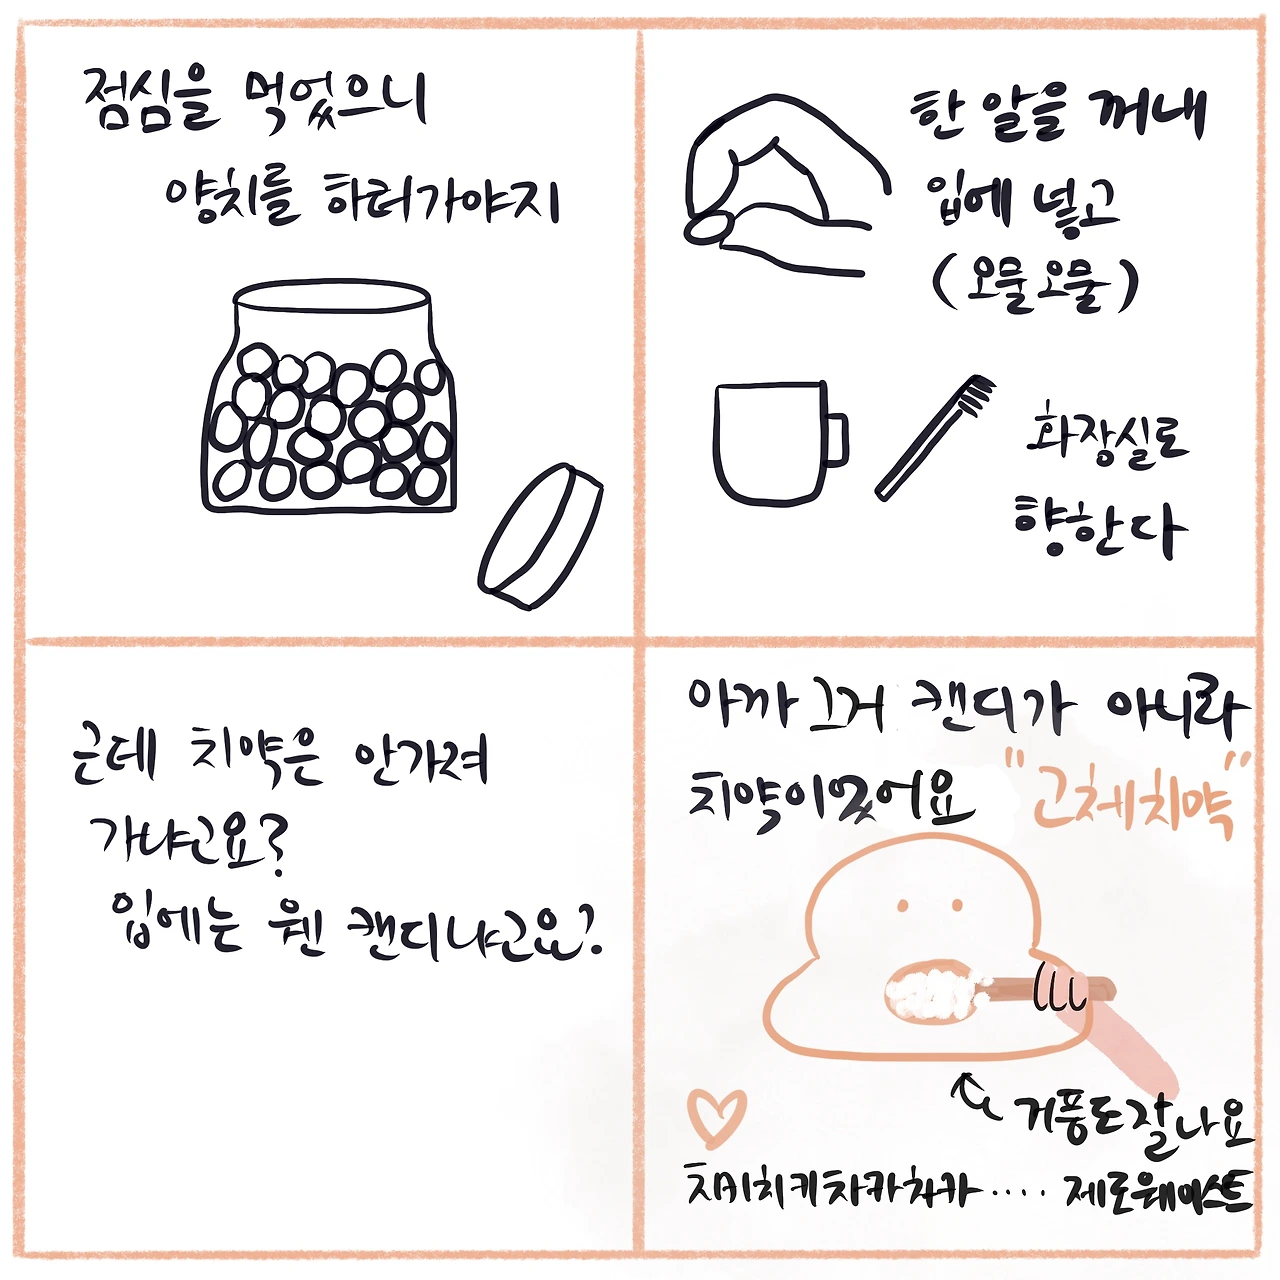 점심을 먹었으니
양치를 하러가야지
한 알을 꺼내
입에 넣고
(오물오물)
화장실로
향한다
근데 치약은 안가져
가냐고요?
입에는 웬 캔디냐고요?
아까 그거 캔디가 아니라
치약이었어요 "고체치약"
거품도 잘나요
치키치키차카차카 ···· 제로웨이스트